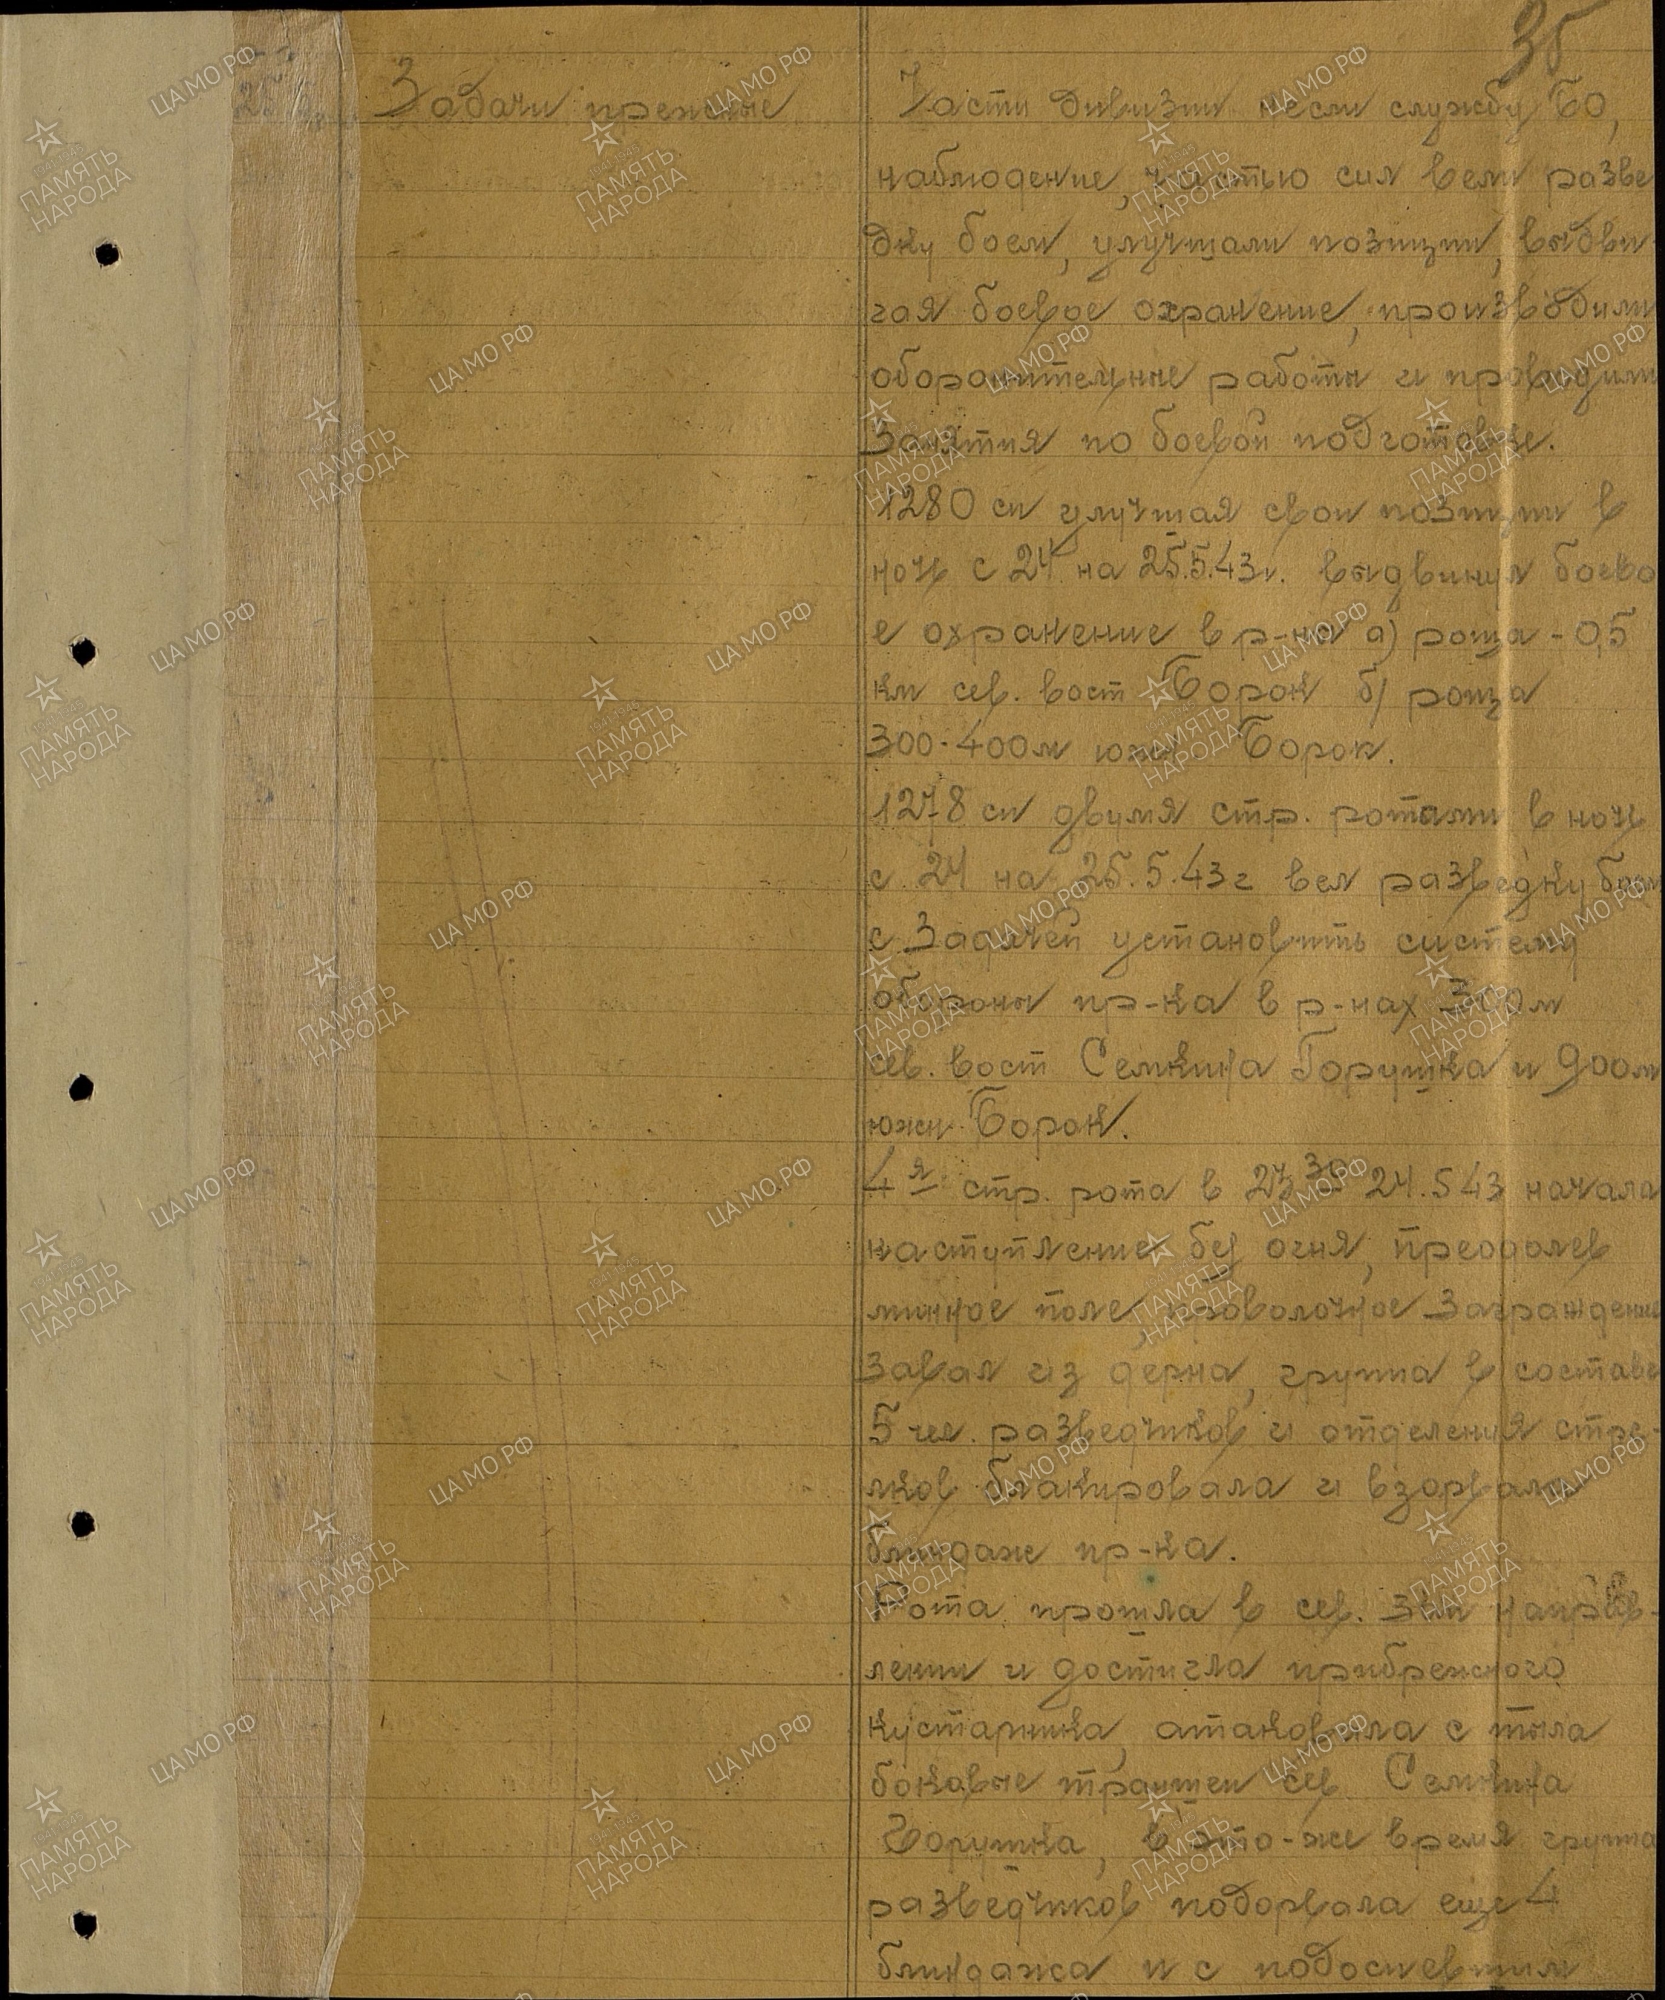 35
25.5
Задачи прежние
Части дивизии несли службу БО,
наблюдение, частью сил вели разве
дку боем, улучшали позиции, выдви-
гая боевое охранение, производили
оборонительные работы и проводили
занятия по боевой подготовке.
1280 сп улучшая свои позиции в
ночь с 24 на 25.5.43г. выдвинул боево
е охранение в р-на а) роща - 0,5
км сев. вост Борок б) роща
300-400м южн Борок.
1278 сп двумя стр. ротами в ночь
с 24 на 25.5.43г вел разведку боем
с задачей установить систему
обороны пр-ка в р-нах 300м
сев. вост Семкина Горушка и 900м
южн. Борок.
4я стр. рота в 23 30 24.5 43 начала
наступление без огня, преодолев
минное поле, проволочное заграждение
завал из дерна, группа в составе
5 чел. разведчиков и отделения стре-
лков блакировала и взорвала
блиндаж пр-ка.
Рота прошла в сев. зап направ-
лении и достигла прибрежного
кустарника, атаковала с тыла
боковые траншеи сев Семкина
Горушка, в это-же время группа
разведчиков подорвала еще 4
блиндажа и с подоспевшим